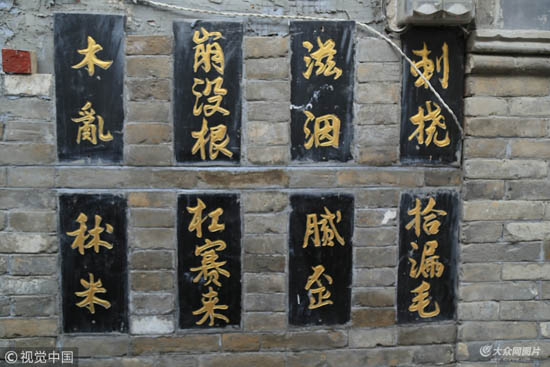 木亂
崩没根
滋洇
刺挠
秫米
杠赛来
腻歪
拾漏毛
©视觉中国
大众网图片